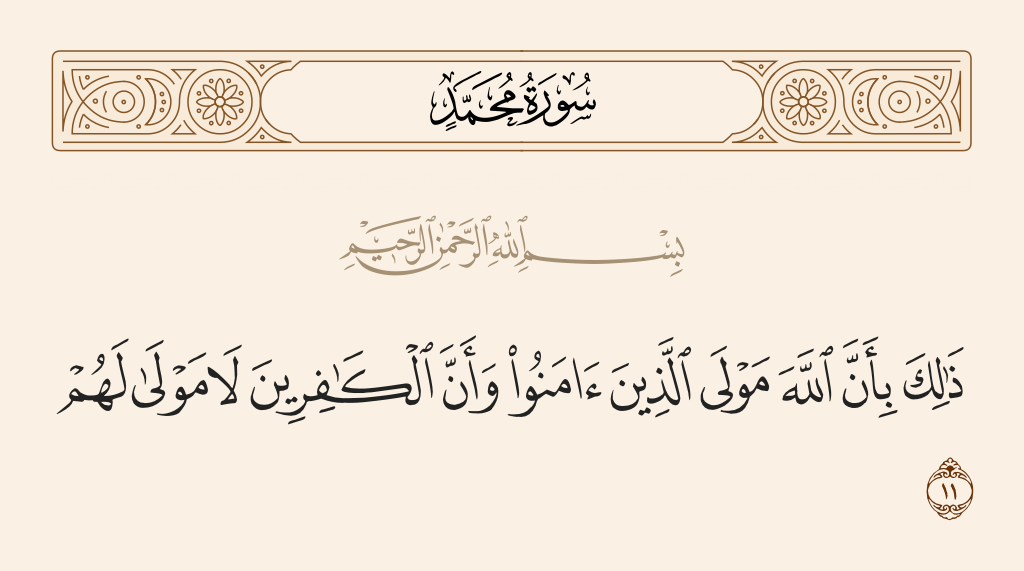 سُورَةُ مُحَمَّدٍ
بِسْمِ ٱللَّهِ ٱلرَّحْمَٰنِ ٱلرَّحِيمِ
ذَٰلِكَ بِأَنَّ ٱللَّهَ مَوْلَى ٱلَّذِينَ ءَامَنُوا۟ وَأَنَّ ٱلْكَـٰفِرِينَ لَا مَوْلَىٰ لَهُمْ
١١